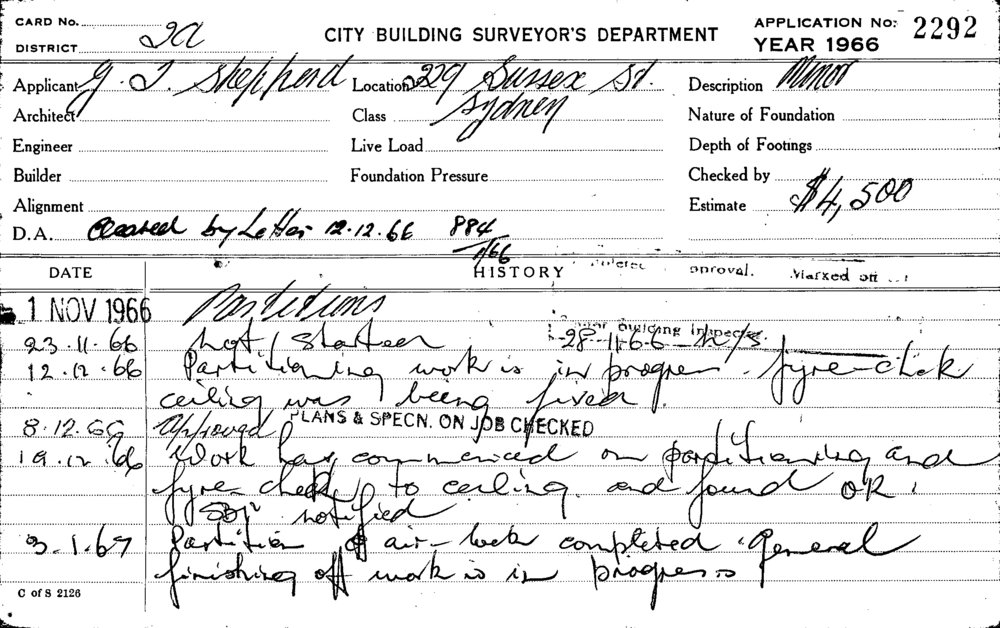 CARD No.
DISTRICT 2a
CITY BUILDING SURVEYOR'S DEPARTMENT
APPLICATION No: 2292
YEAR 1966
Applicant G. J. Shepherd
Location 229 Sussex St.
Sydney
Description Minor
Architect
Class
Nature of Foundation
Engineer
Live Load
Depth of Footings
Builder
Foundation Pressure
Checked by
Alignment
Estimate $4,500
D.A. Cleared by Letter 12.12.66 884/66
DATE
HISTORY
Approval. Marked off
1 NOV 1966 Partitions
23.11.66 Not Started
Building Inspector
28-11-66
12.12.66 Partitioning work is in progress. fyre-chek
ceiling was being fixed.
8.12.66 Approved PLANS & SPECN. ON JOB CHECKED
19.12.66 Work has commenced on partitioning and
fyre check to ceiling and found OK.
notified
3.1.67 Partition air-lock completed. General
finishing off work is in progress
C of S 2126